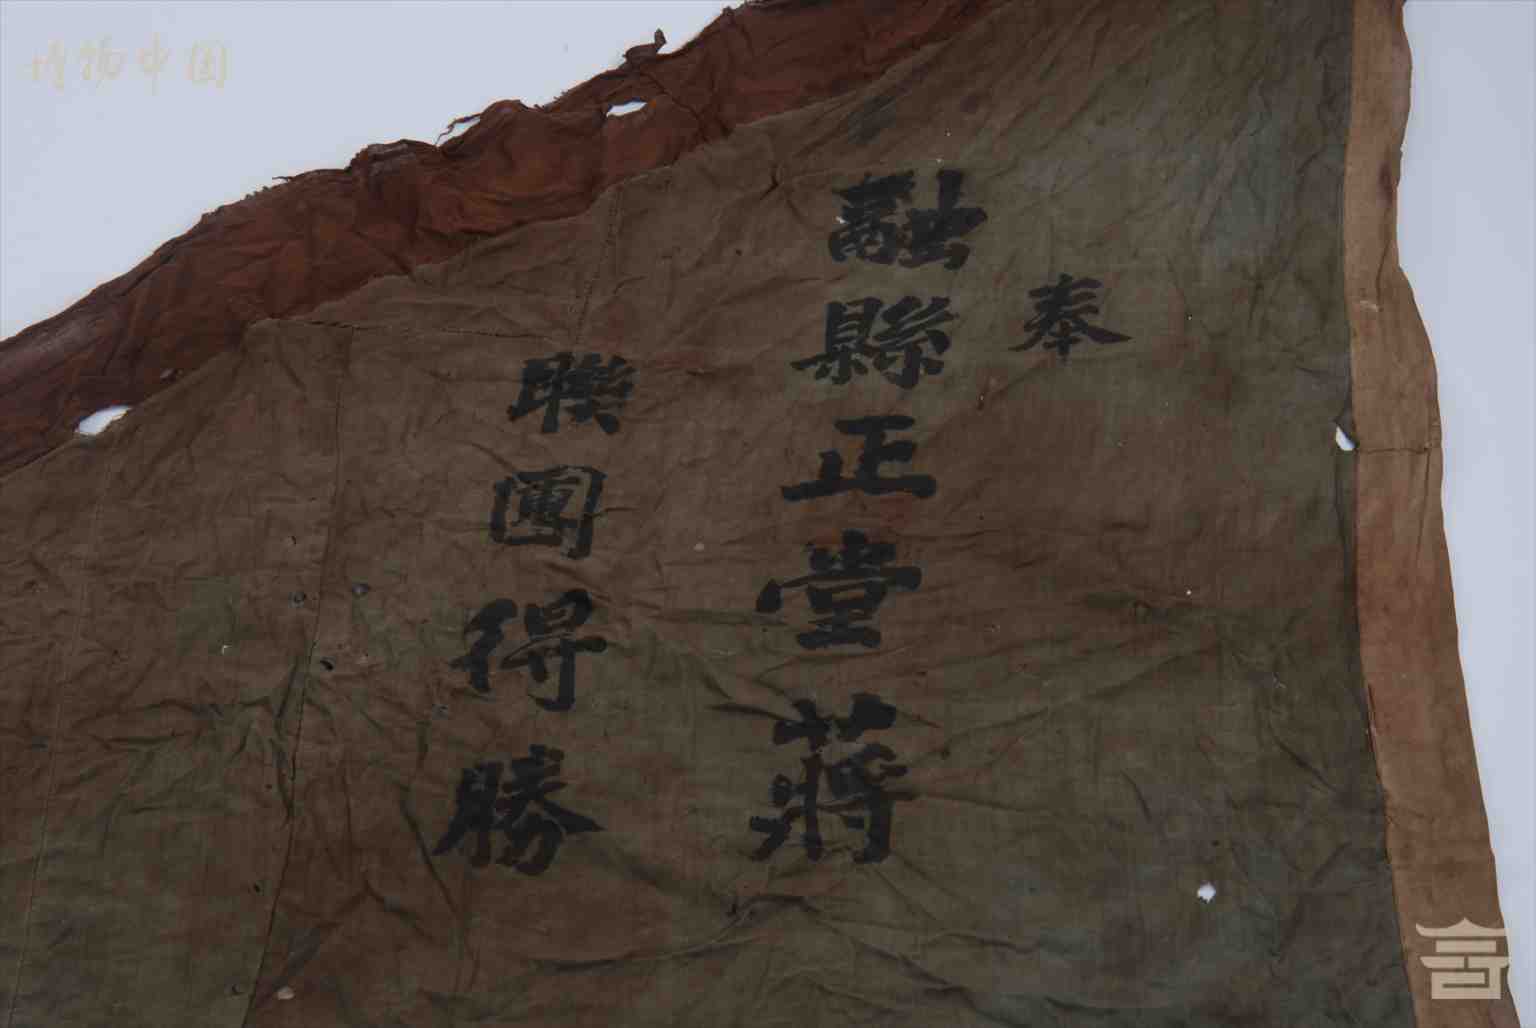 奉
融縣正堂蔣
聯團得勝
博物中国